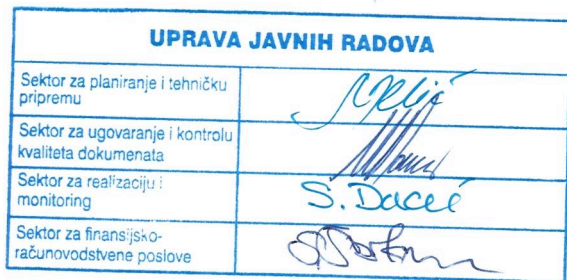 UPRAVA JAVNIH RADOVA
Sektor za planiranje i tehničku
pripremu
Sektor za ugovaranje i kontrolu
kvaliteta dokumenata
Sektor za realizaciju i
monitoring
S. Dacić
Sektor za finansijsko-
računovodstvene poslove